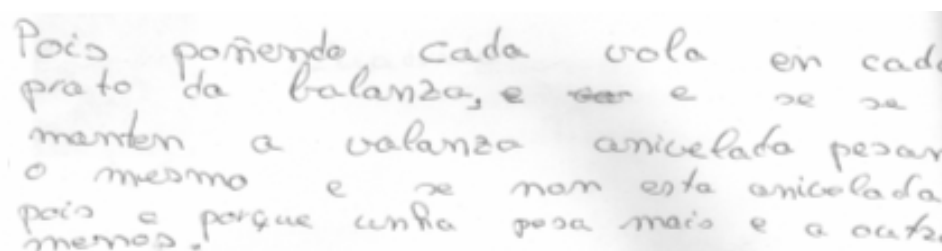 Pois poñendo cada vola en cada
prato da balanza, e e se se
manten a valanza anivelada pesan
o mesmo e se non esta anivelada
pois e porque unha pesa mais e a outra
menos.